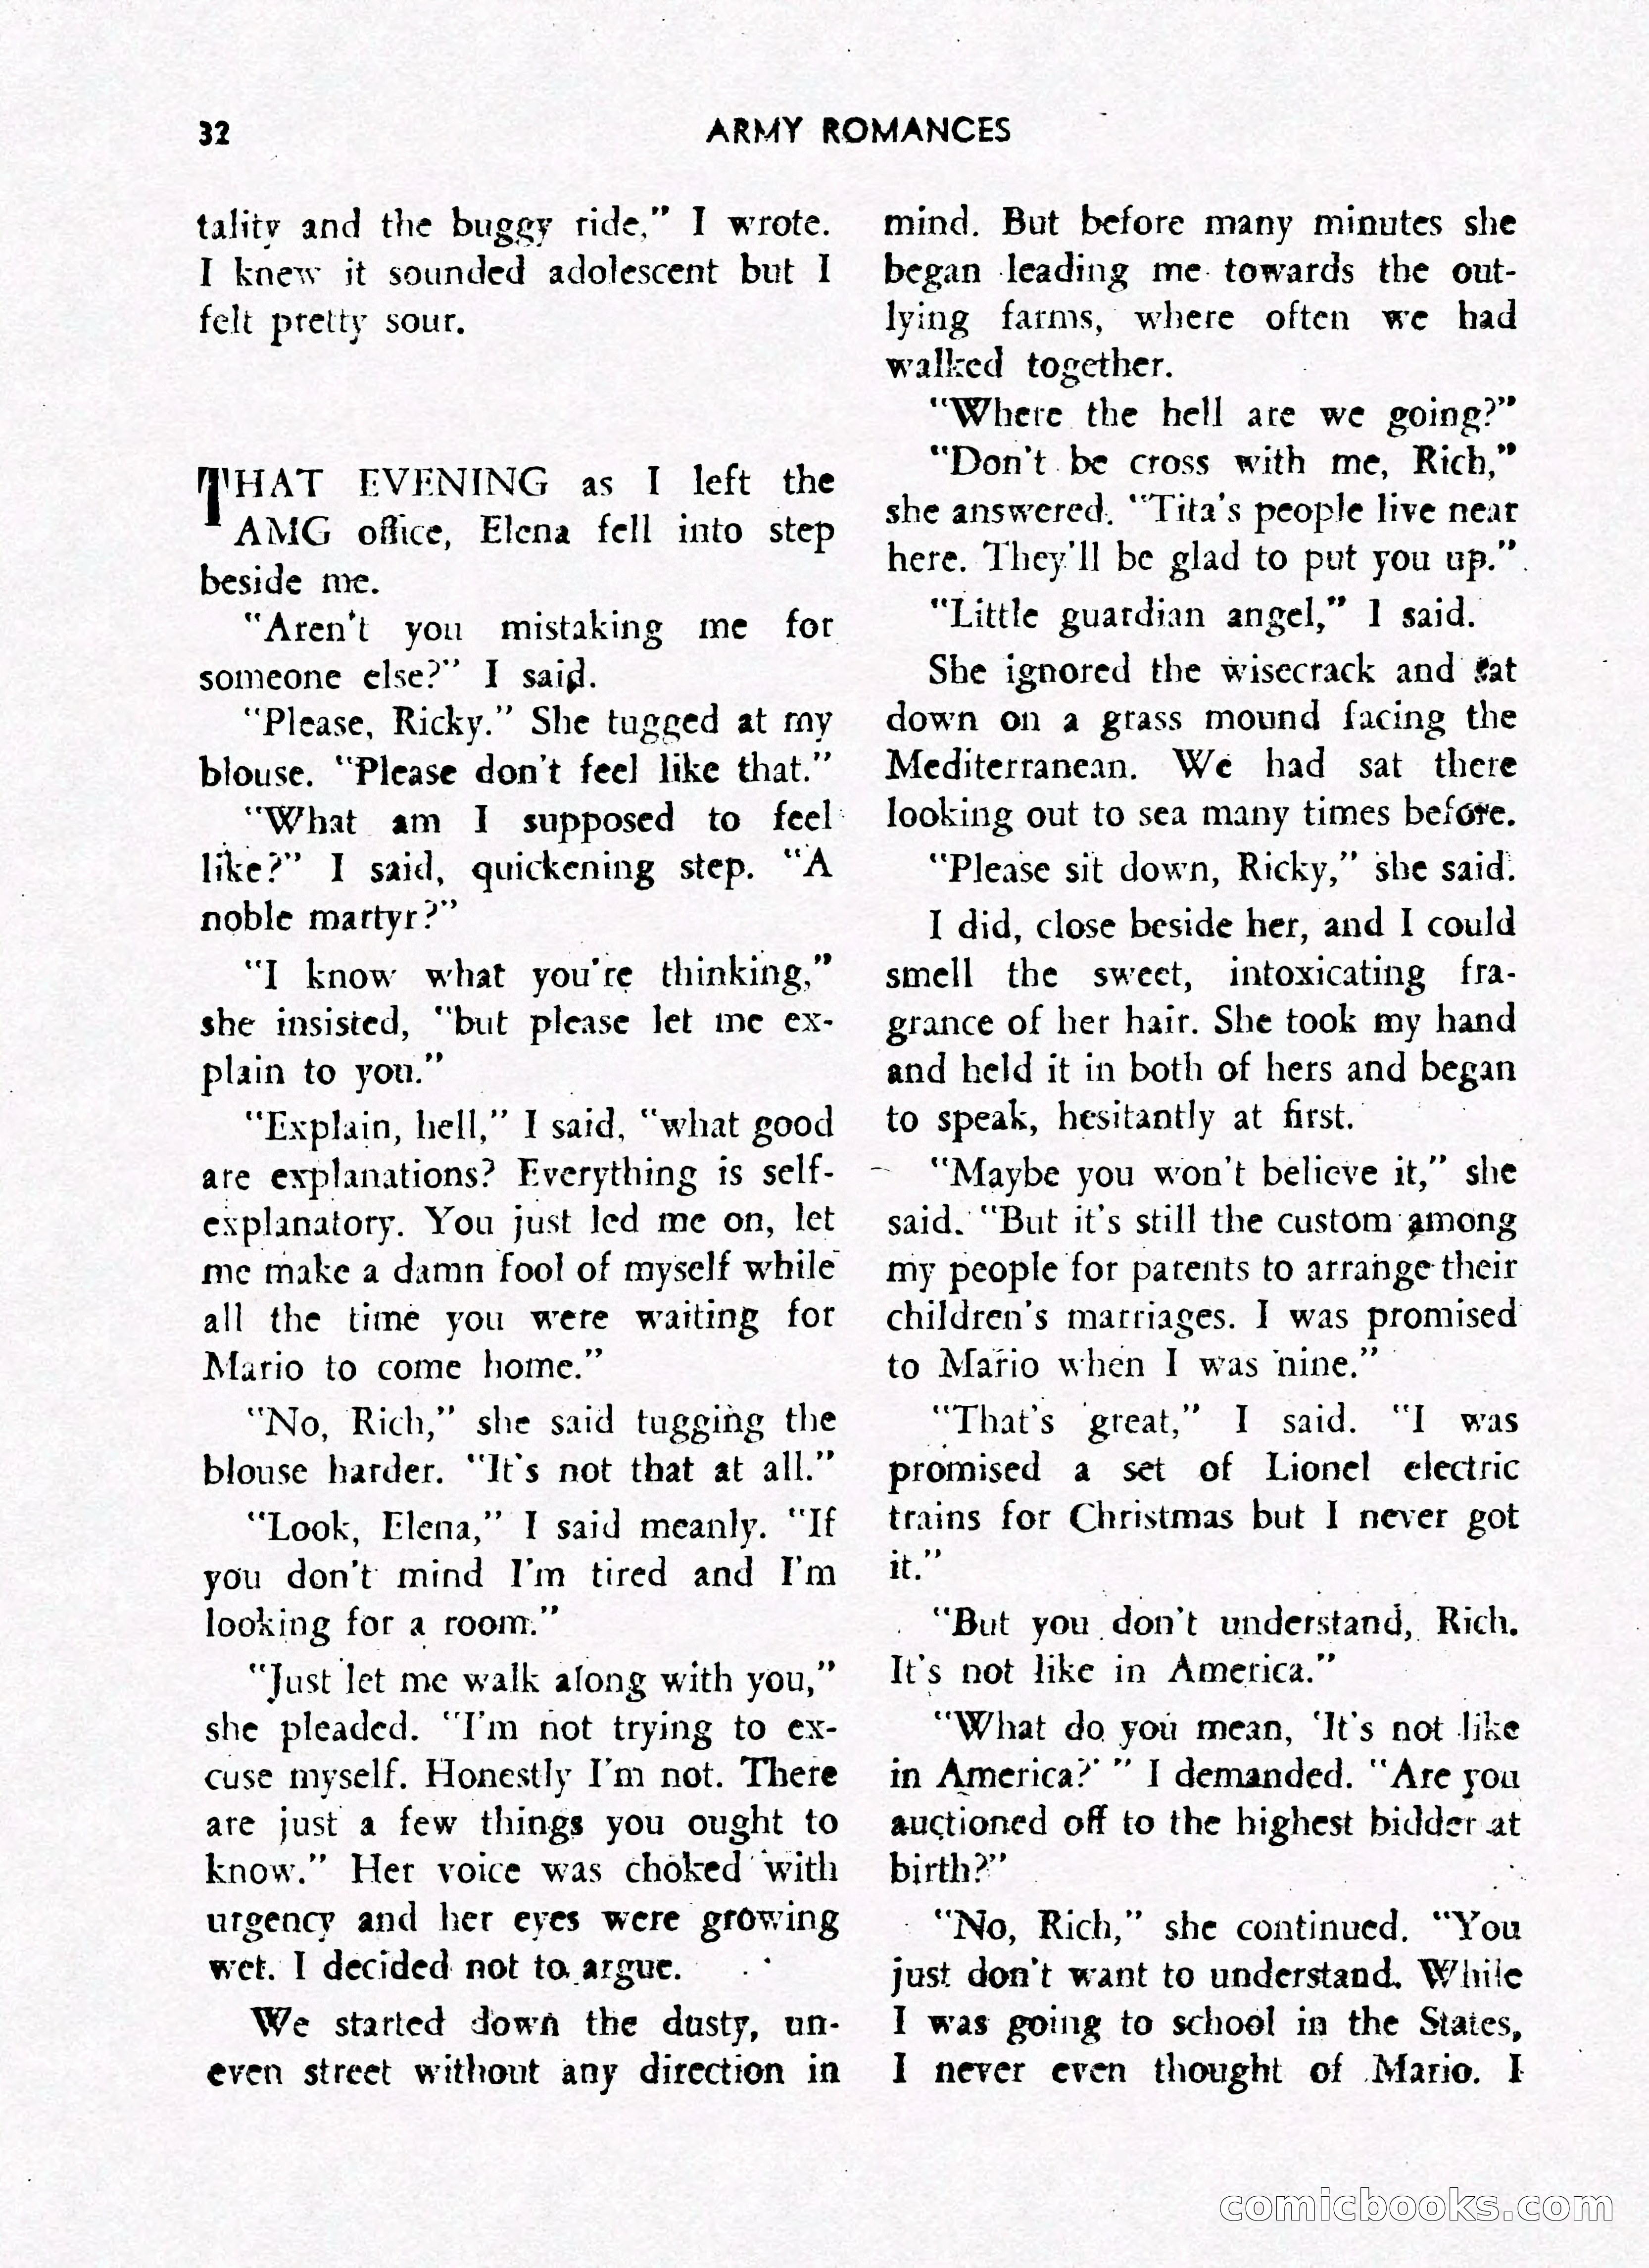 32
ARMY ROMANCES
tality and the buggy ride," I wrote.
I knew it sounded adolescent but I
felt pretty sour.
THAT EVENING as I left the
AMG office, Elena fell into step
beside me.
"Aren't you mistaking me for
someone else?" I said.
"Please, Ricky." She tugged at my
blouse. "Please don't feel like that."
"What am I supposed to feel
like?" I said, quickening step. "A
noble martyr?"
"I know what you're thinking,"
she insisted, "but please let me ex-
plain to you."
"Explain, hell," I said, "what good
are explanations? Everything is self-
explanatory. You just led me on, let
me make a damn fool of myself while
all the time you were waiting for
Mario to come home."
"No, Rich," she said tugging the
blouse harder. "It's not that at all."
"Look, Elena," I said meanly. "If
you don't mind I'm tired and I'm
looking for a room."
"Just let me walk along with you,"
she pleaded. "I'm not trying to ex-
cuse myself. Honestly I'm not. There
are just a few things you ought to
know." Her voice was choked with
urgency and her eyes were growing
wet. I decided not to argue.
We started down the dusty, un-
even street without any direction in
mind. But before many minutes she
began leading me towards the out-
lying farms, where often we had
walked together.
"Where the hell are we going?"
"Don't be cross with me, Rich,"
she answered. "Tita's people live near
here. They'll be glad to put you up."
"Little guardian angel," I said.
She ignored the wisecrack and sat
down on a grass mound facing the
Mediterranean. We had sat there
looking out to sea many times before.
"Please sit down, Ricky," she said.
I did, close beside her, and I could
smell the sweet, intoxicating fra-
grance of her hair. She took my hand
and held it in both of hers and began
to speak, hesitantly at first.
"Maybe you won't believe it," she
said. "But it's still the custom among
my people for parents to arrange their
children's marriages. I was promised
to Mario when I was nine."
"That's great," I said. "I was
promised a set of Lionel electric
trains for Christmas but I never got
it."
"But you don't understand, Rich.
It's not like in America."
"What do you mean, 'It's not like
in America?' " I demanded. "Are you
auctioned off to the highest bidder at
birth?"
"No, Rich," she continued. "You
just don't want to understand. While
I was going to school in the States,
I never even thought of Mario. I
comicbooks.com